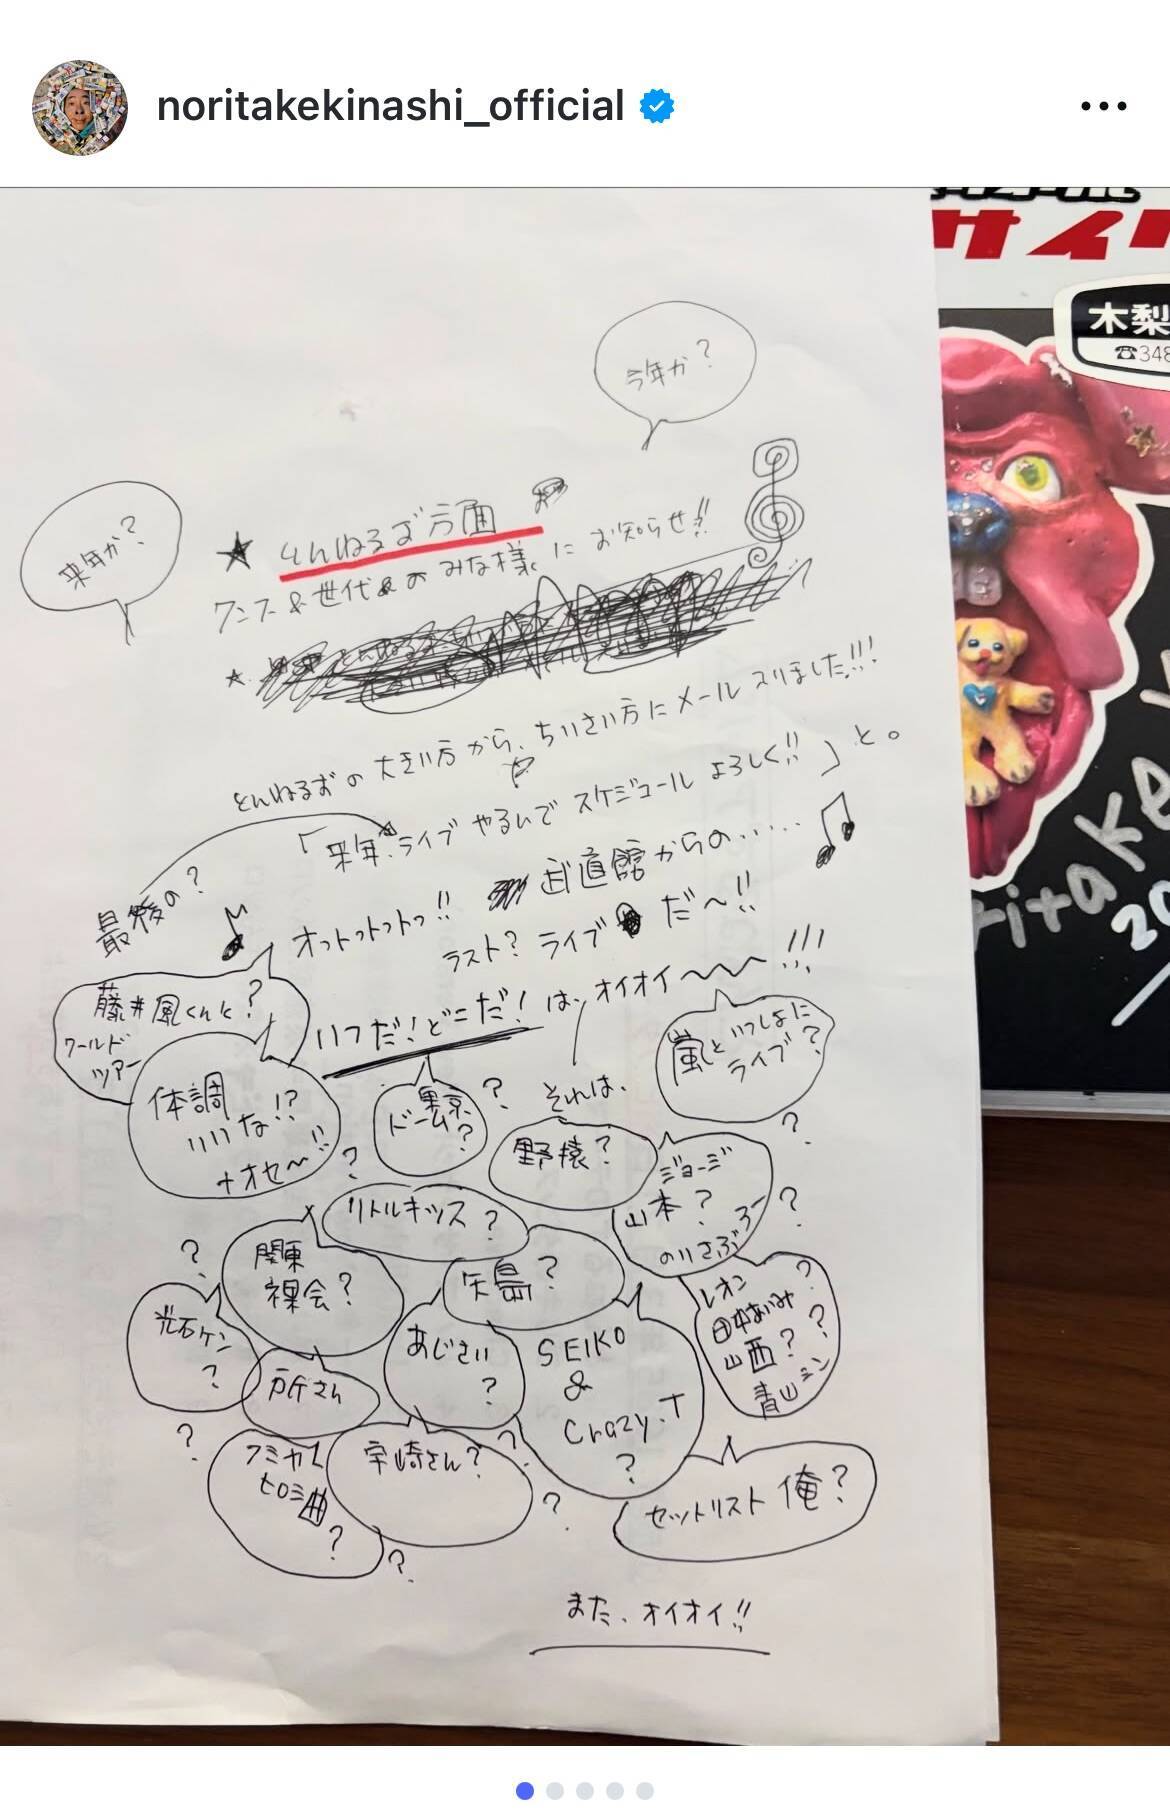 noritakekinashi_official
サイク
木梨
☎348
今年か?
来年か?
★ とんねるず方面
ファン&世代&のみな様にお知らせ!!
★
とんねるずの大きい方から、ちいさい方にメール入りました!!!
「来年、ライブやるんでスケジュールよろしく!!」と。
最後の?
オットットットっ!! 武道館からの......
ラスト? ライブ だ〜!!
いつだ!どこだ! は、オイオイ〜〜〜!!!
藤井風くんと?
ワールド
ツアー
体調
いいな!?
ナオセ〜!!
東京
ドーム
?
?
それは、
嵐といっしょに
ライブ?
野猿?
ジョージ
山本?
のりさぶろー
?
?
?
リトルキッズ?
関東
裸会?
矢島?
?
光石ケン
?
所さん
あじさい
?
SEIKO
&
Crazy.T
?
レオン?
田中あいみ
山西??
青山テン
?
フミヤ
ヒロミ曲
?
宇崎さん?
?
?
?
セットリスト 俺?
また、オイオイ!!
ritake
20